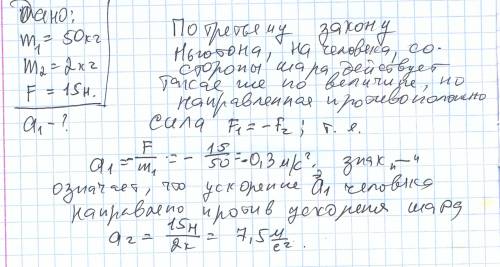 Дано:
m₁ = 50кг
m₂ = 2кг
F = 15н.
a₁ - ?
По третьему закону
Ньютона, на человека, со-
стороны шара действует
такая же по величине, но
направленная противоположно
сила F₁ = -f₂; т. я.
a₁ = F/m₁ = - 15/50 = -0,3 м/с². знак „—“
означает, что ускорение a⃗₁ человека
направлено против ускореня шара
a₂ = 15н/2к = 7,5 м/с².